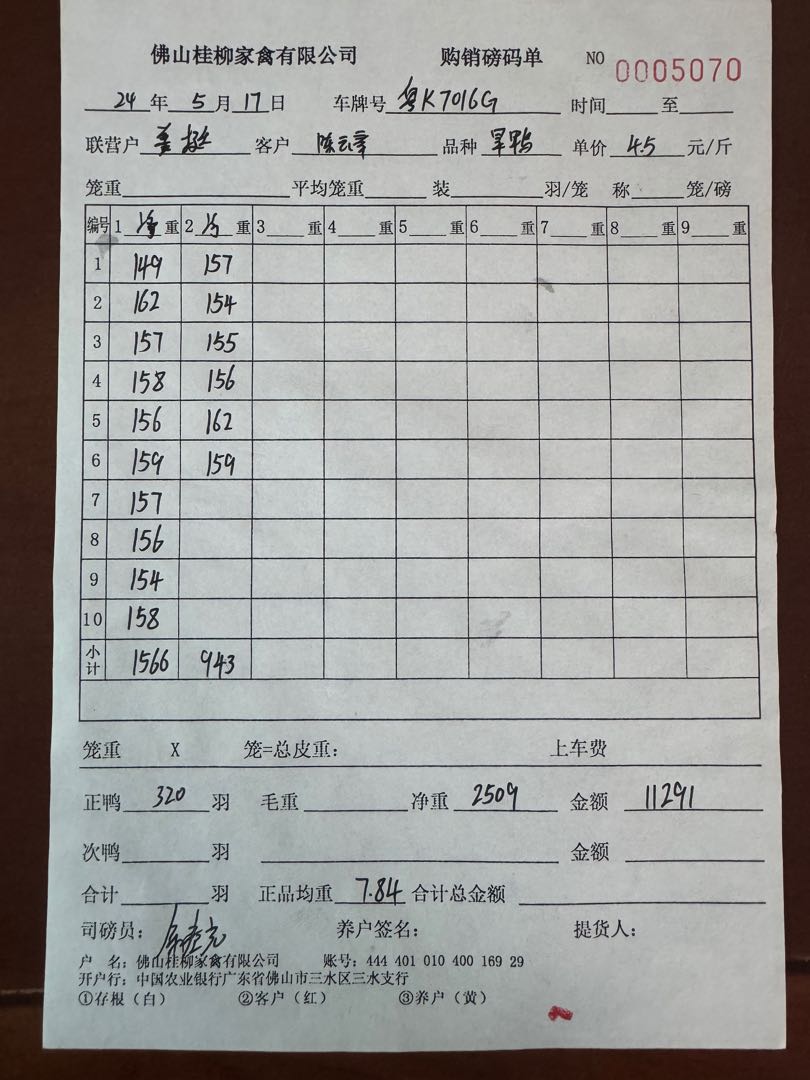 佛山桂柳家禽有限公司 购销磅码单 NO 0005070
24 年 5 月 17 日 车牌号 粤K7016G 时间 至
联营户 客户 陈云章 品种 旱鸭 单价 4.5 元/斤
笼重 平均笼重 装 羽/笼 称 笼/磅
编号 1 净 重 2 净 重 3 重 4 重 5 重 6 重 7 重 8 重 9 重
1 149 157
2 162 154
3 157 155
4 158 156
5 156 162
6 159 159
7 157
8 156
9 154
10 158
小计 1566 943
笼重 X 笼=总皮重： 上车费
正鸭 320 羽 毛重 净重 2509 金额 11291
次鸭 羽 金额
合计 羽 正品均重 7.84 合计总金额
司磅员： 养户签名： 提货人：
户 名：佛山桂柳家禽有限公司 账号：444 401 010 400 169 29
开户行：中国农业银行广东省佛山市三水区三水支行
①存根（白） ②客户（红） ③养户（黄）